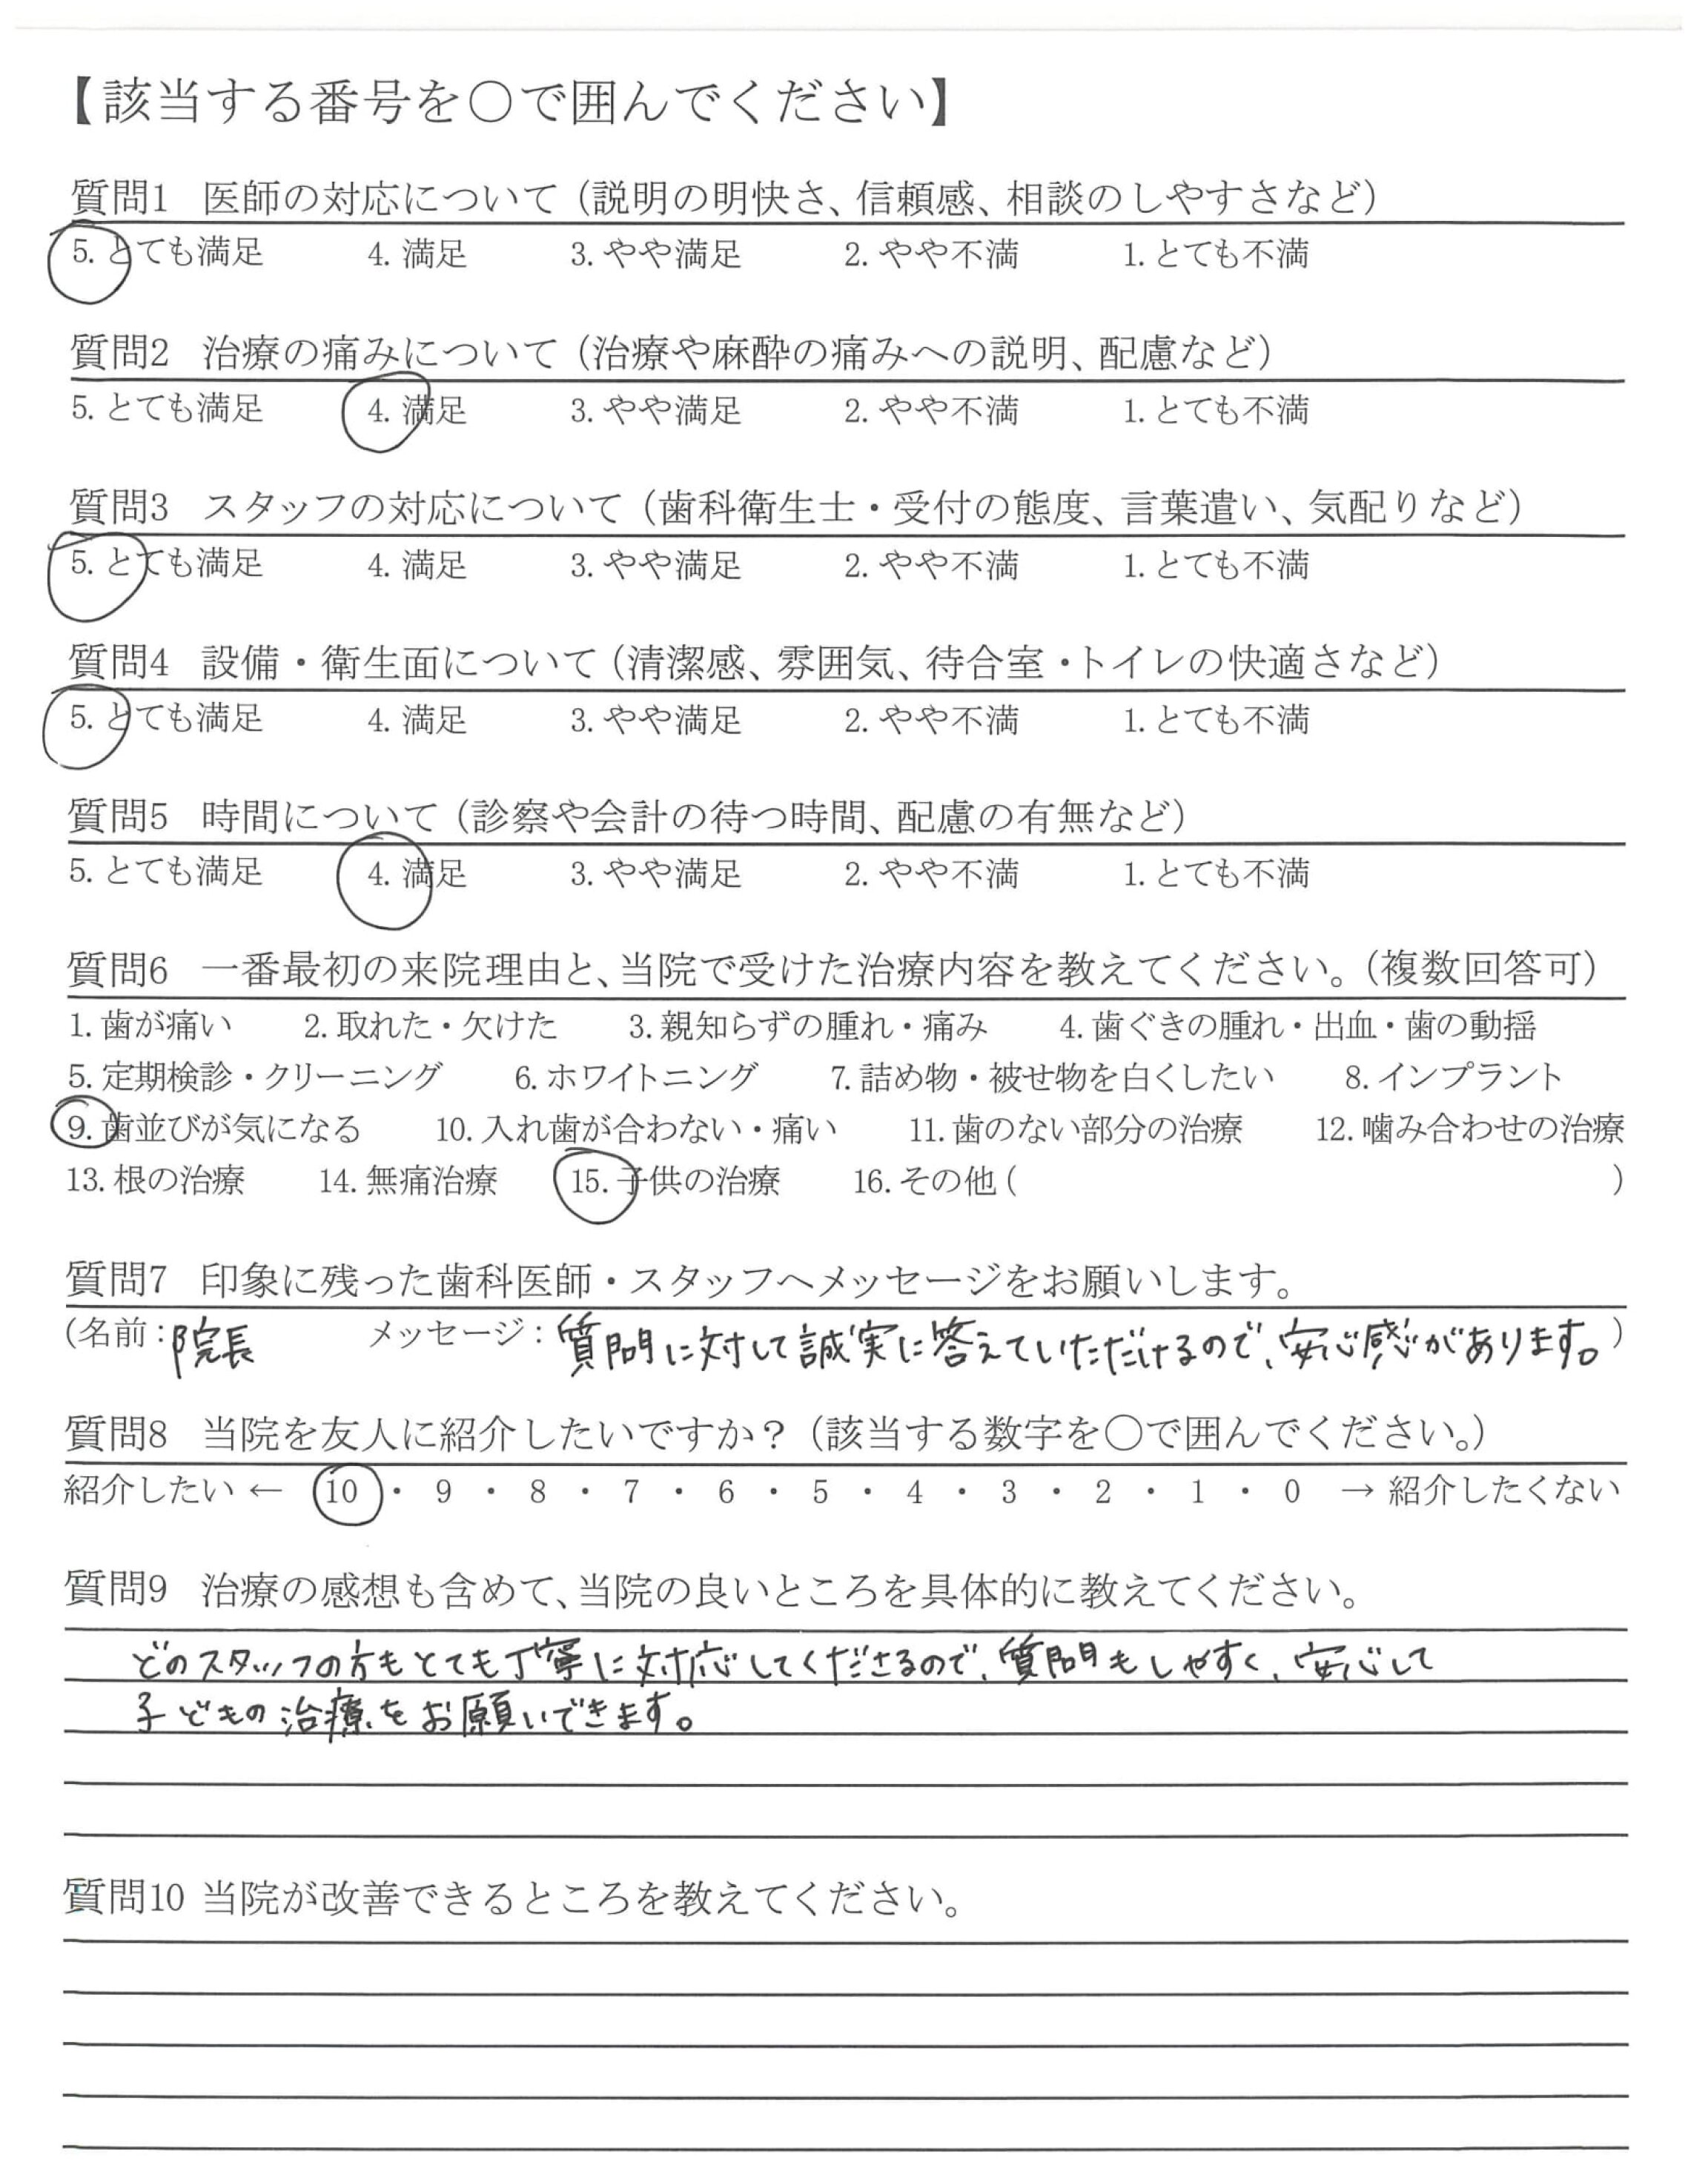 【該当する番号を〇で囲んでください】
質問1 医師の対応について（説明の明快さ、信頼感、相談のしやすさなど）
5. とても満足 4. 満足 3. やや満足 2. やや不満 1. とても不満
質問2 治療の痛みについて（治療や麻酔の痛みへの説明、配慮など）
5. とても満足 4. 満足 3. やや満足 2. やや不満 1. とても不満
質問3 スタッフの対応について（歯科衛生士・受付の態度、言葉遣い、気配りなど）
5. とても満足 4. 満足 3. やや満足 2. やや不満 1. とても不満
質問4 設備・衛生面について（清潔感、雰囲気、待合室・トイレの快適さなど）
5. とても満足 4. 満足 3. やや満足 2. やや不満 1. とても不満
質問5 時間について（診察や会計の待つ時間、配慮の有無など）
5. とても満足 4. 満足 3. やや満足 2. やや不満 1. とても不満
質問6 一番最初の来院理由と、当院で受けた治療内容を教えてください。（複数回答可）
1. 歯が痛い 2. 取れた・欠けた 3. 親知らずの腫れ・痛み 4. 歯ぐきの腫れ・出血・歯の動揺
5. 定期検診・クリーニング 6. ホワイトニング 7. 詰め物・被せ物を白くしたい 8. インプラント
9. 歯並びが気になる 10. 入れ歯が合わない・痛い 11. 歯のない部分の治療 12. 噛み合わせの治療
13. 根の治療 14. 無痛治療 15. 子供の治療 16. その他 ( )
質問7 印象に残った歯科医師・スタッフへメッセージをお願いします。
（名前：院長 メッセージ：質問に対して誠実に答えていただけるので、安心感があります。）
質問8 当院を友人に紹介したいですか？（該当する数字を〇で囲んでください。）
紹介したい ← 10 ・ 9 ・ 8 ・ 7 ・ 6 ・ 5 ・ 4 ・ 3 ・ 2 ・ 1 ・ 0 → 紹介したくない
質問9 治療の感想も含めて、当院の良いところを具体的に教えてください。
どのスタッフの方もとても丁寧に対応してくださるので、質問もしやすく、安心して
子どもの治療をお願いできます。
質問10 当院が改善できるところを教えてください。